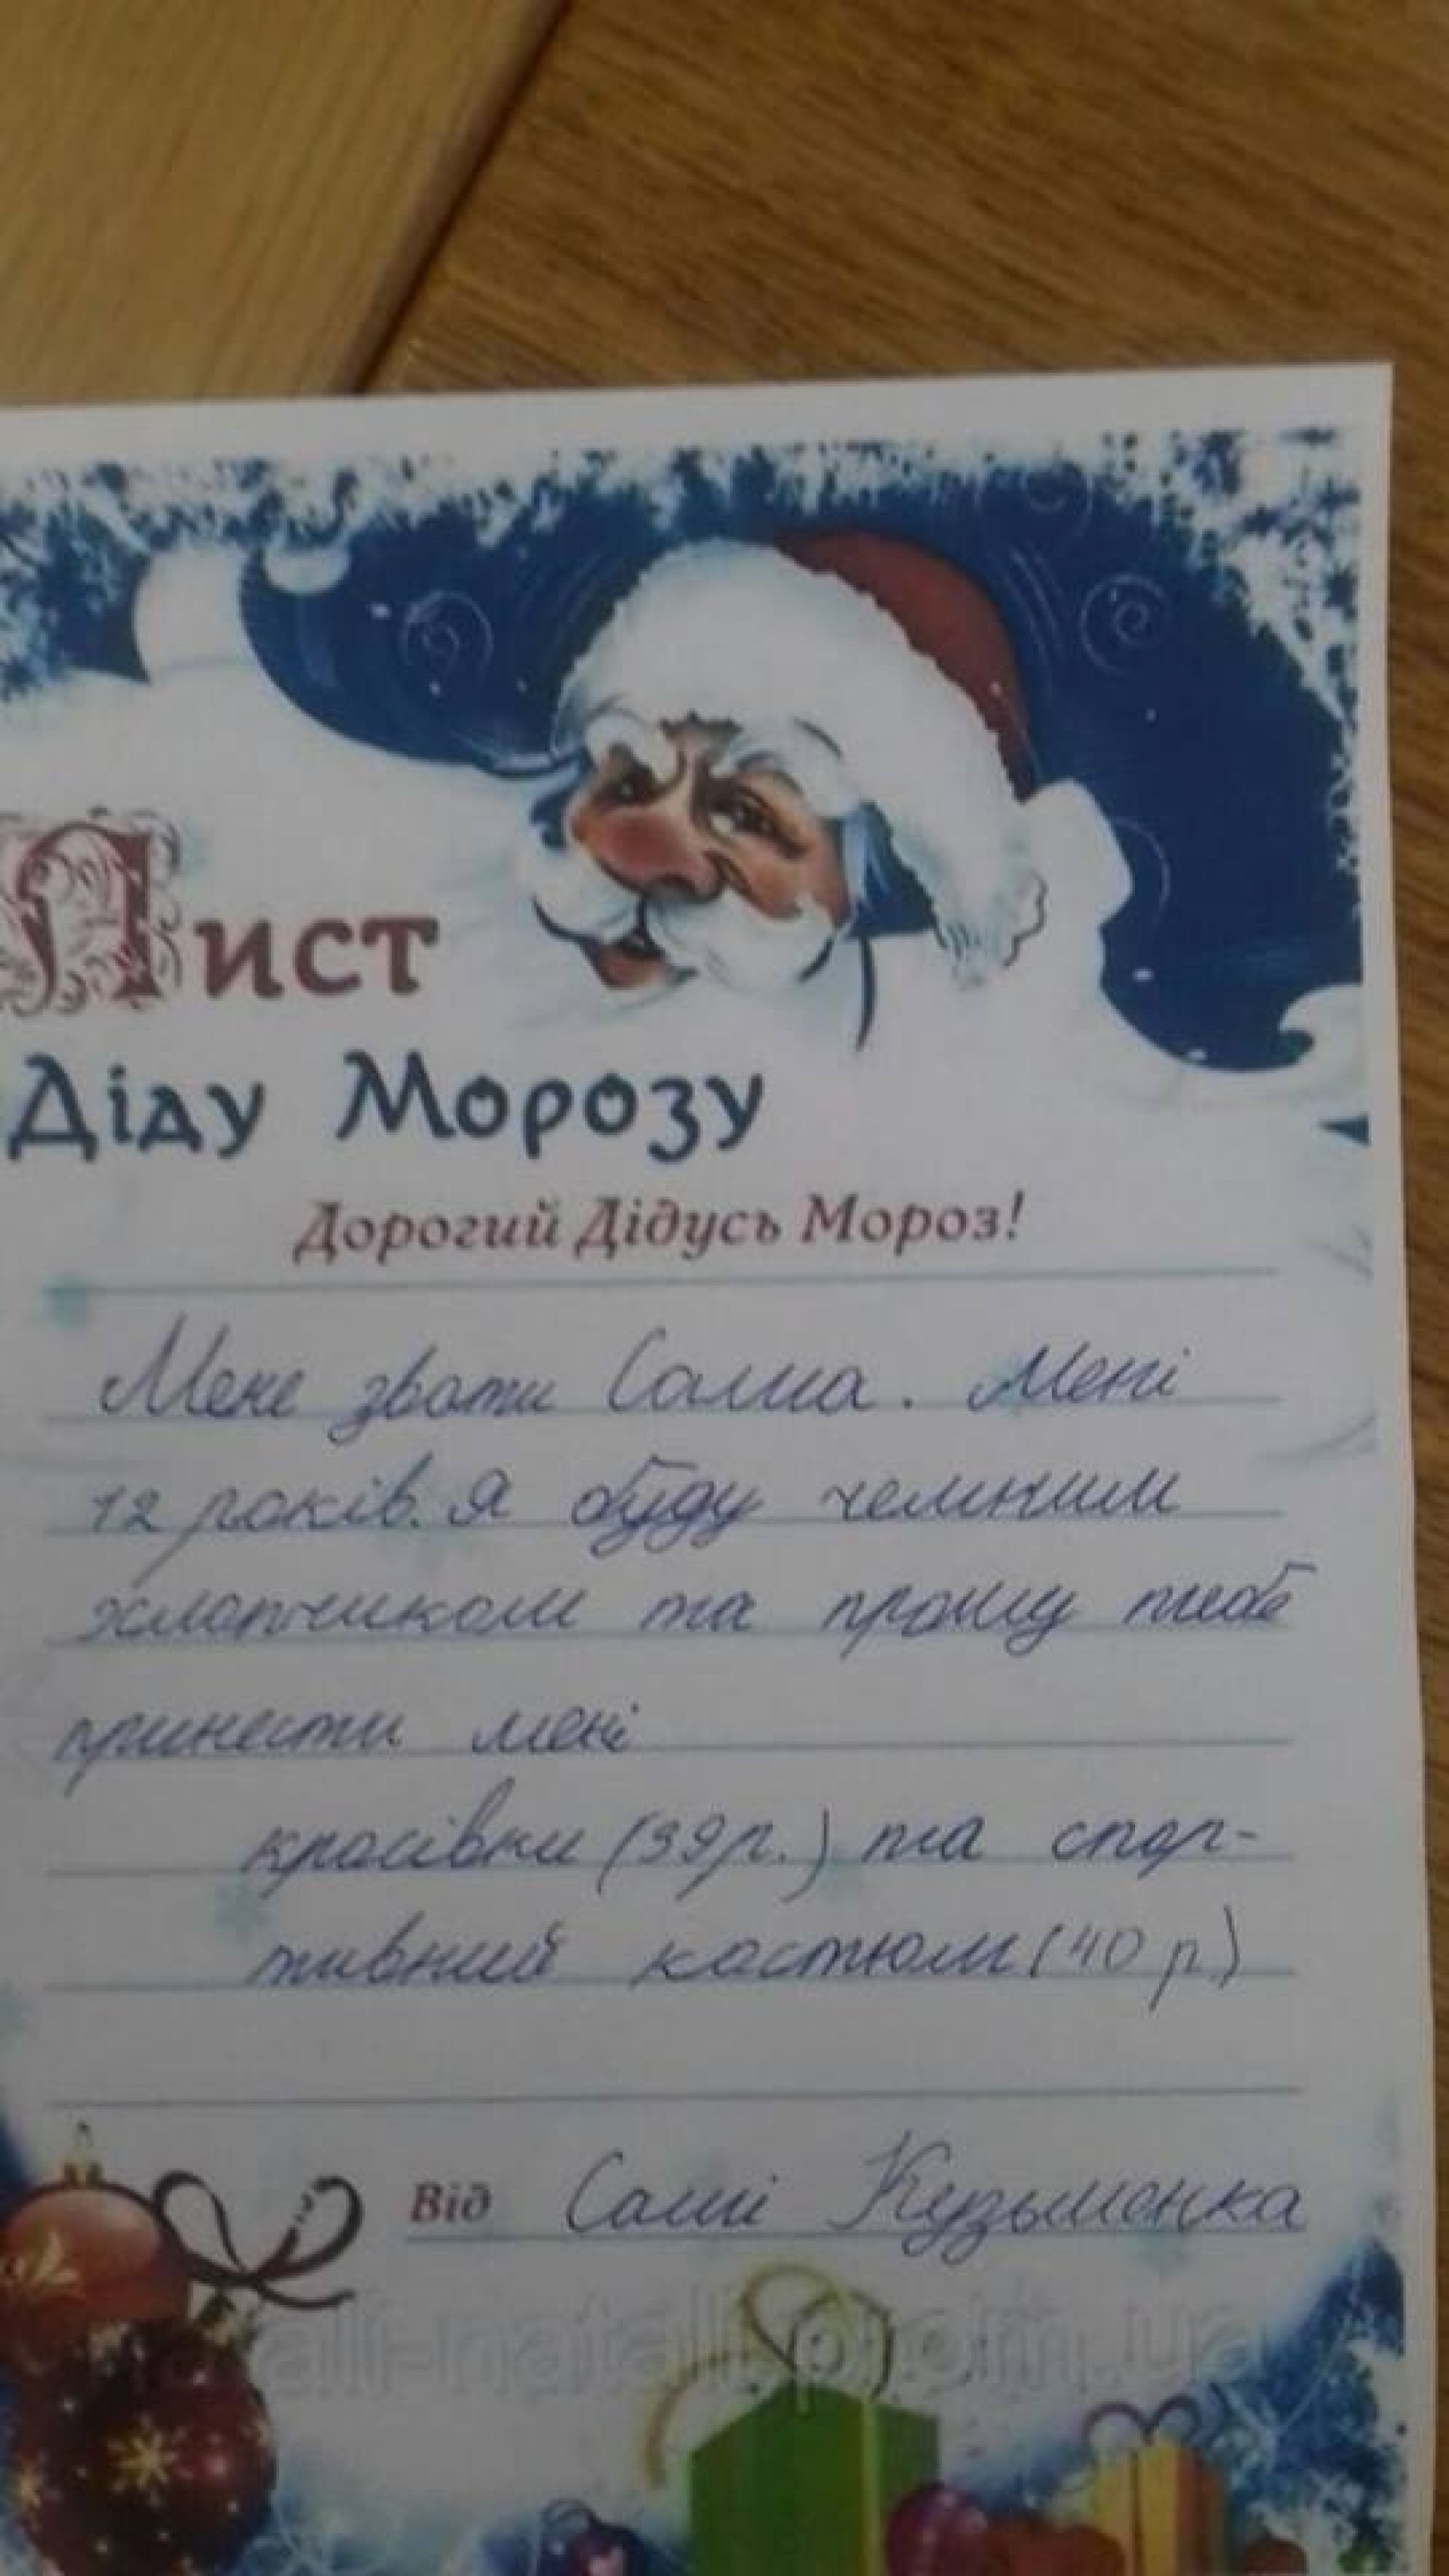 Лист
Діду Морозу
Дорогий Дідусь Мороз!
Мене звати Саша. Мені
12 років. Я буду чемним
хлопчиком та прошу тебе
принести мені
кросівки (39 р.) та спор-
тивний костюм (40 р.)
Від Саші Кузьменка
natali.prom.ua